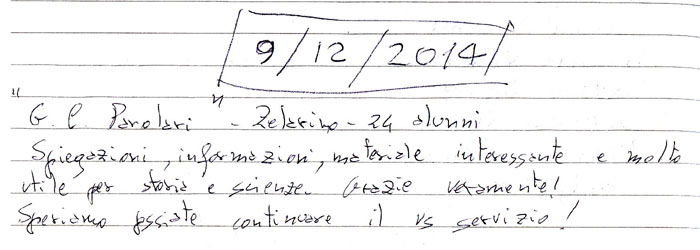 9/12/2014
"G. C. Parolari" - Zelarino - 24 alunni
Spiegazioni, informazioni, materiale interessante e molto
utile per storia e scienze. Grazie veramente!
Speriamo possiate continuare il vs servizio!